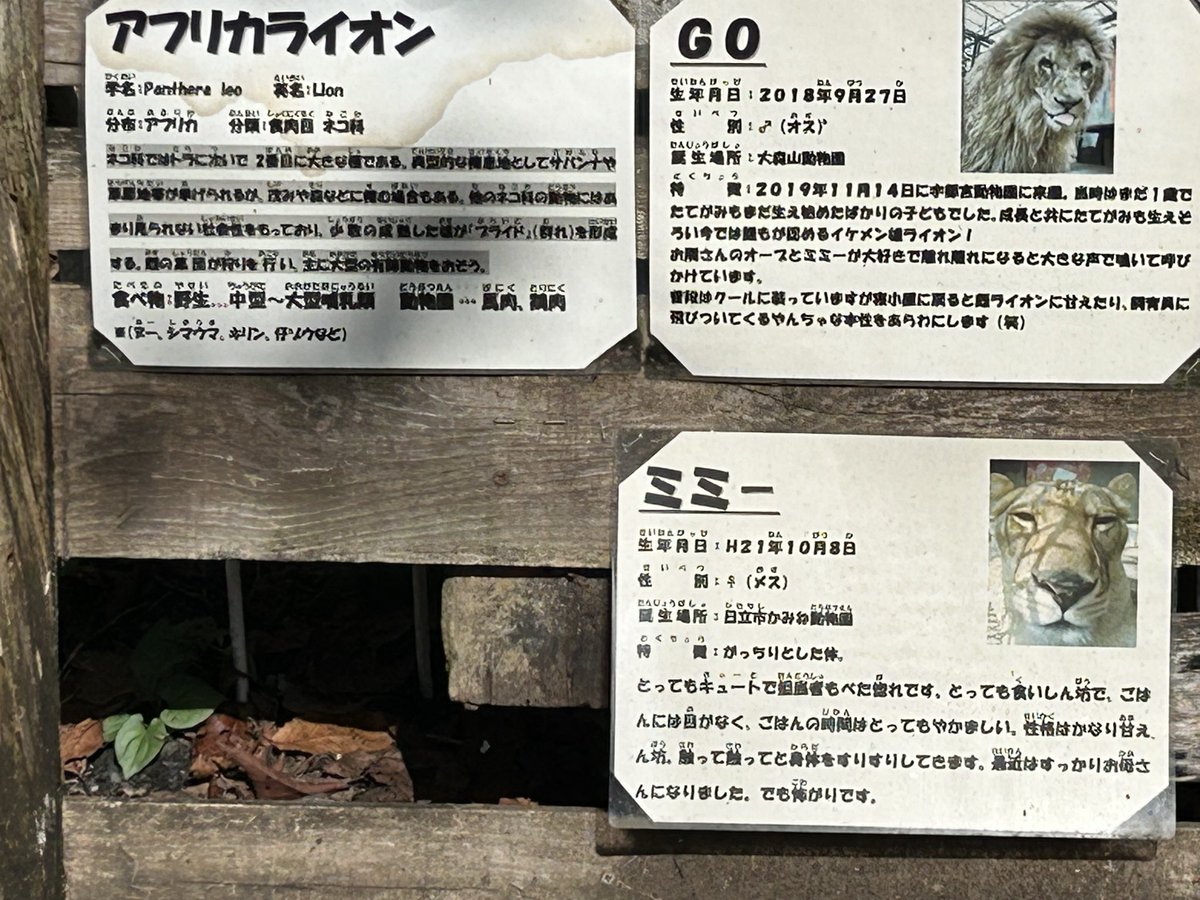 アフリカライオン
がくめい えいめい
学名:Panthera leo 英名:Lion
分布:アフリカ 分類:食肉目 ネコ科
ネコ科ではトラに次いで 2番目に大きな種である。典型的な棲息地としてサバンナや
草原地帯が挙げられるが、茂みや森などに棲む場合もある。他のネコ科の動物にはあ
まり見られない社会性をもっており、少数の成熟した雄が「プライド」(群れ)を形成
する。雌の集団が狩りを行い、主に大型の有蹄動物をおそう。
食べ物:野生… 中型～大型哺乳類 動物園… 馬肉、鶏肉
シマウマ、キリン、仔ゾウなど)
GO
せいねんがっぴ ねん がつ か
生年月日:2018年9月27日
せいべつ
性 別:♂(オス)
たんじょうばしょ
誕生場所:大森山動物園
とくちょう
特 徴:2019年11月14日に宇都宮動物園に来園。当時はまだ1歳で
たてがみもまだ生え始めたばかりの子どもでした。成長と共にたてがみも生えそ
ろい今では誰もが認めるイケメン雄ライオン!
お隣さんのオーブとミミーが大好きで離れ離れになると大きな声で鳴いて呼び
かけています。
普段はクールに装っていますが寝小屋に戻ると雌ライオンに甘えたり、飼育員に
飛びついてくるやんちゃな本性をあらわにします(笑)
ミミー
せいねんがっぴ ねん がつ か
生年月日:H21年10月8日
せいべつ めす
性 別:♀(メス)
たんじょうばしょ ひたちし どうぶつえん
誕生場所:日立市かみね動物園
とくちょう
特 徴:がっちりとした体。
とってもキュートで担当者もべた惚れです。とっても食いしん坊で、ごは
んには目がなく、ごはんの時間はとってもやかましい。性格はかなり甘え
ん坊。触って触ってと身体をすりすりしてきます。最近はすっかりお母さ
んになりました。でも怖がりです。